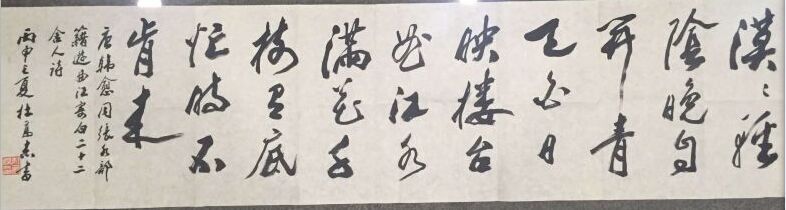 漠〻輕
陰晚自
开青
天白日
映楼台
曲江水
满花千
樹有底
忙时不
肯来
唐韩愈同張水部
籍遊曲江寄白二十二
舍人诗
丙申之夏杜